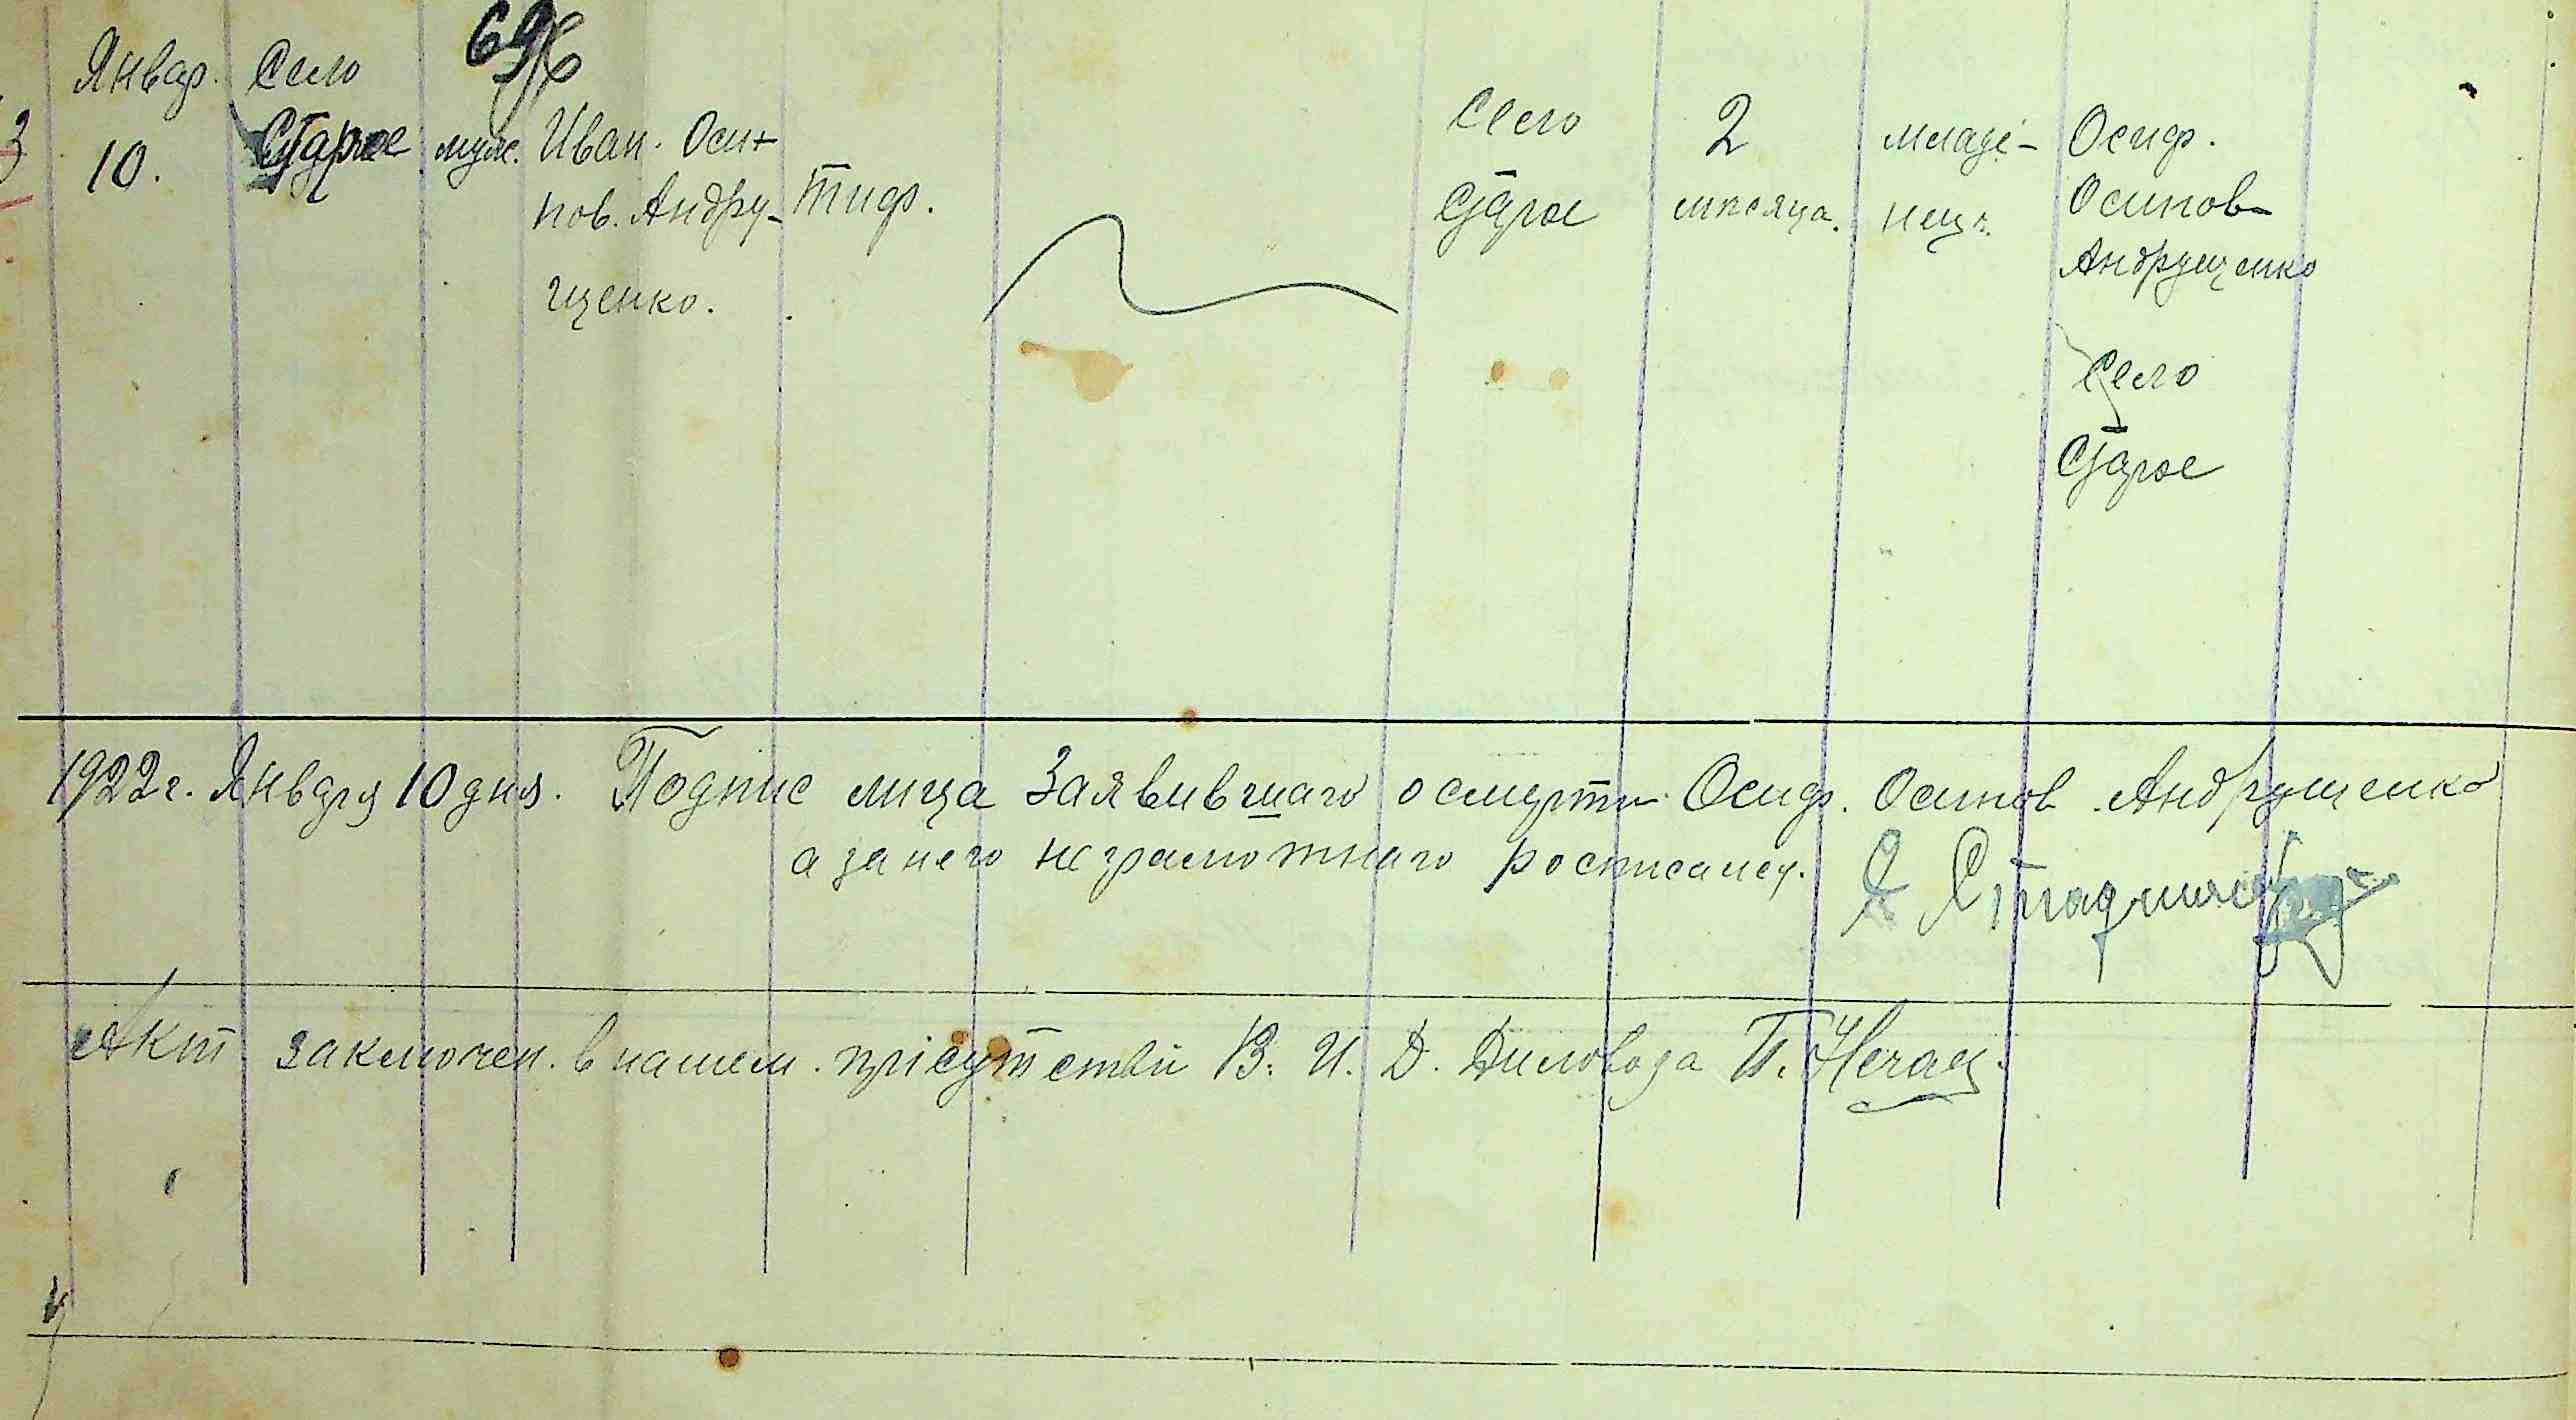 69
Январ. Село
3 10. Старое муж. Иван. Оси-
пов. Андру-
щенко.
Тиф.
Село
Старое
2
мисяца.
младе-
нец.
Осиф.
Осипов
Андрущенко
Село
Старое
1922 г. Января 10 дня. Подпис лица Заявившаго о смерти Осиф. Осипов Андрущенко
а за него неграмотнаго росписался.
Акт заключен. в нашем. прісутствіи В. И. Д. Диловода П. Нечай.